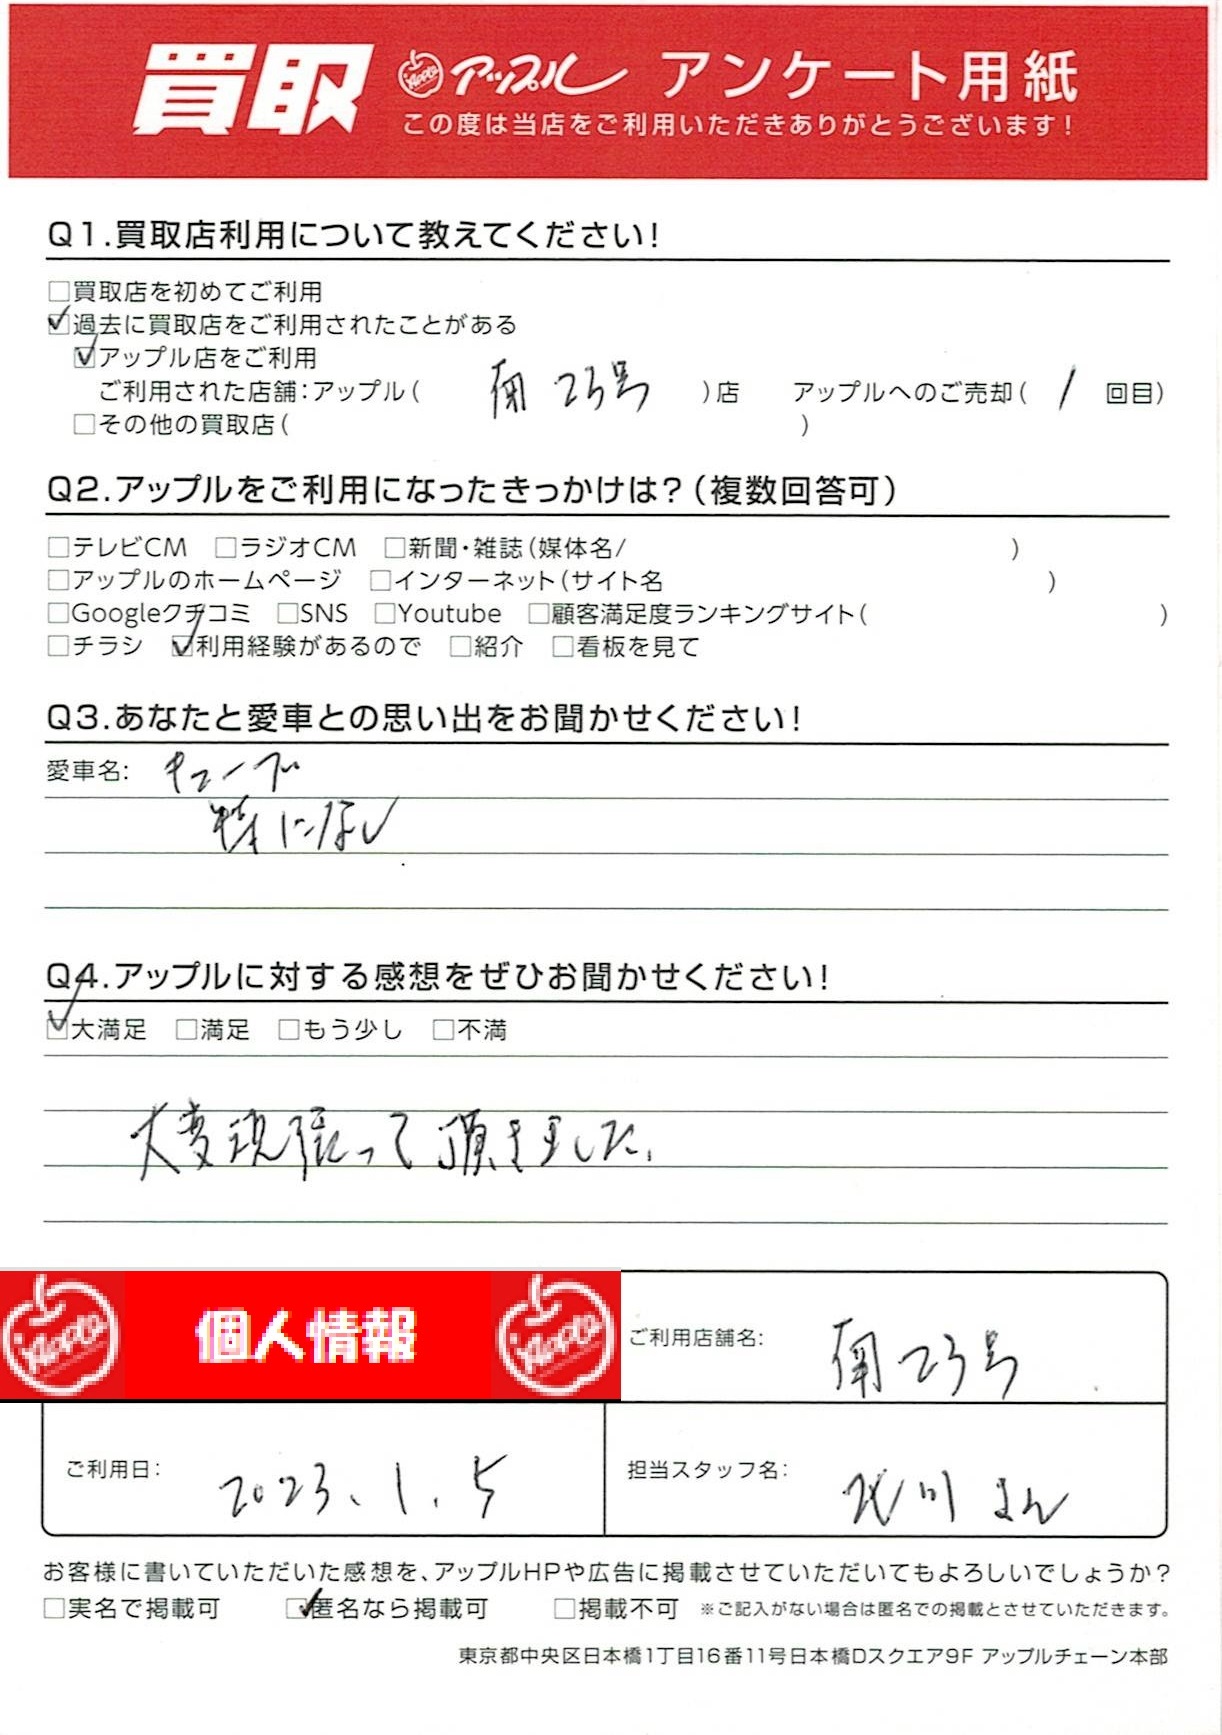 買取 Apple アップル アンケート用紙
この度は当店をご利用いただきありがとうございます!
Q1.買取店利用について教えてください!
□買取店を初めてご利用
☑過去に買取店をご利用されたことがある
☑アップル店をご利用
ご利用された店舗:アップル( 南23号 )店 アップルへのご売却( 1 回目)
□その他の買取店( )
Q2.アップルをご利用になったきっかけは?(複数回答可)
□テレビCM □ラジオCM □新聞・雑誌(媒体名/ )
□アップルのホームページ □インターネット(サイト名 )
□Googleクチコミ □SNS □Youtube □顧客満足度ランキングサイト( )
□チラシ ☑利用経験があるので □紹介 □看板を見て
Q3.あなたと愛車との思い出をお聞かせください!
愛車名: キューブ
特になし
Q4.アップルに対する感想をぜひお聞かせください!
☑大満足 □満足 □もう少し □不満
大変頑張って頂きました.
Apple 個人情報 Apple
ご利用店舗名: 南23号
ご利用日: 2023.1.5
担当スタッフ名: 北川さん
お客様に書いていただいた感想を、アップルHPや広告に掲載させていただいてもよろしいでしょうか?
□実名で掲載可 ☑匿名なら掲載可 □掲載不可 ※ご記入がない場合は匿名での掲載とさせていただきます。
東京都中央区日本橋1丁目16番11号日本橋Dスクエア9F アップルチェーン本部